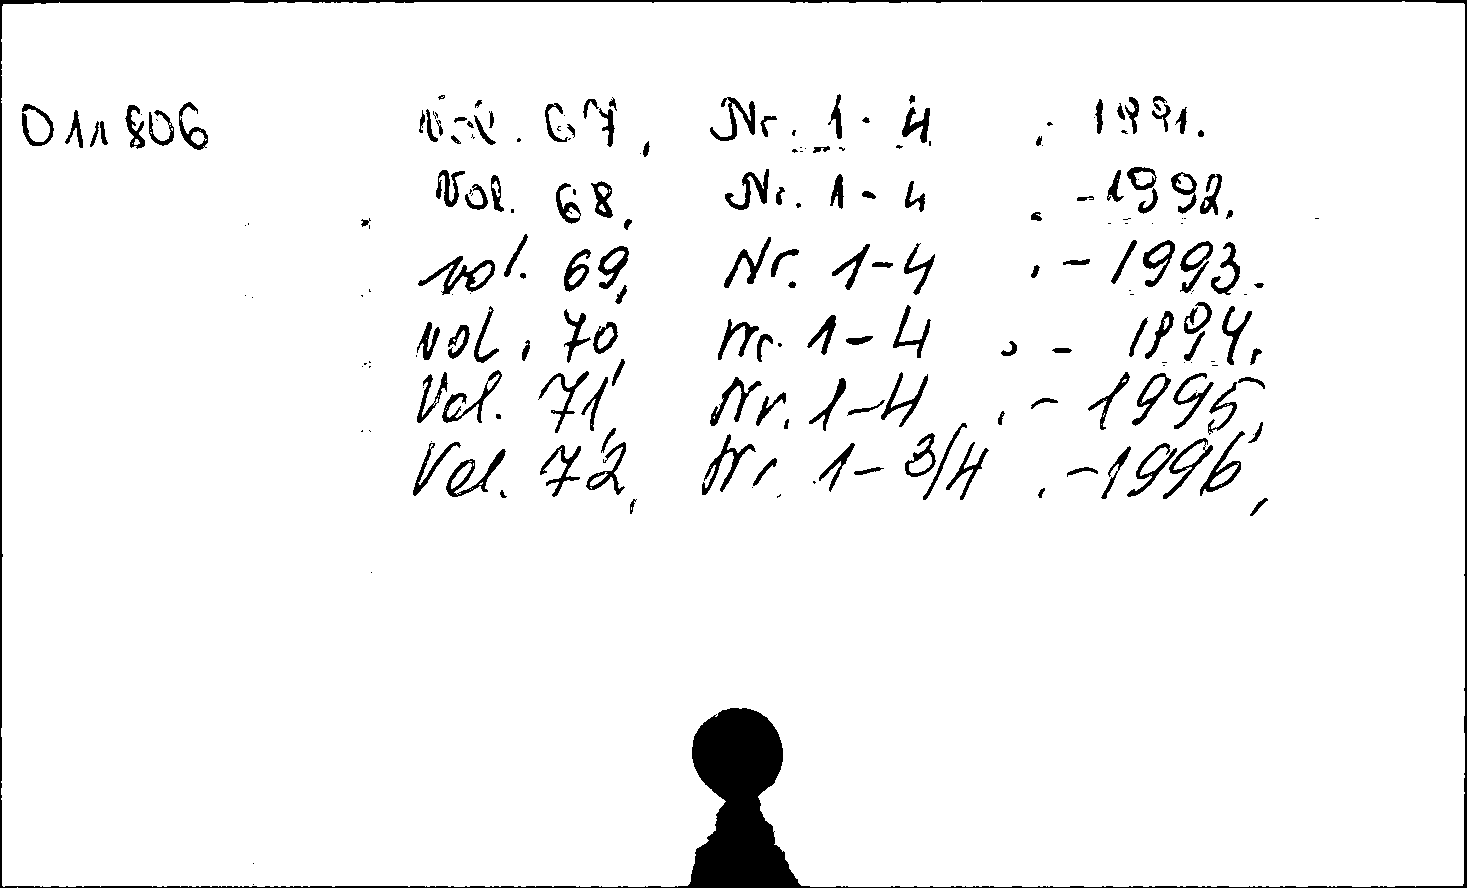 011806 Vol. 67, Nr. 1-4 . 1991.
Vol. 68, Nr. 1-4 . -1992.
vol. 69, Nr. 1-4 . -1993.
vol. 70, Nr. 1-4 , - 1994.
Vol. 71, Nr. 1-4 . - 1995,
Vol. 72, Nr. 1-3/4 . -1996,